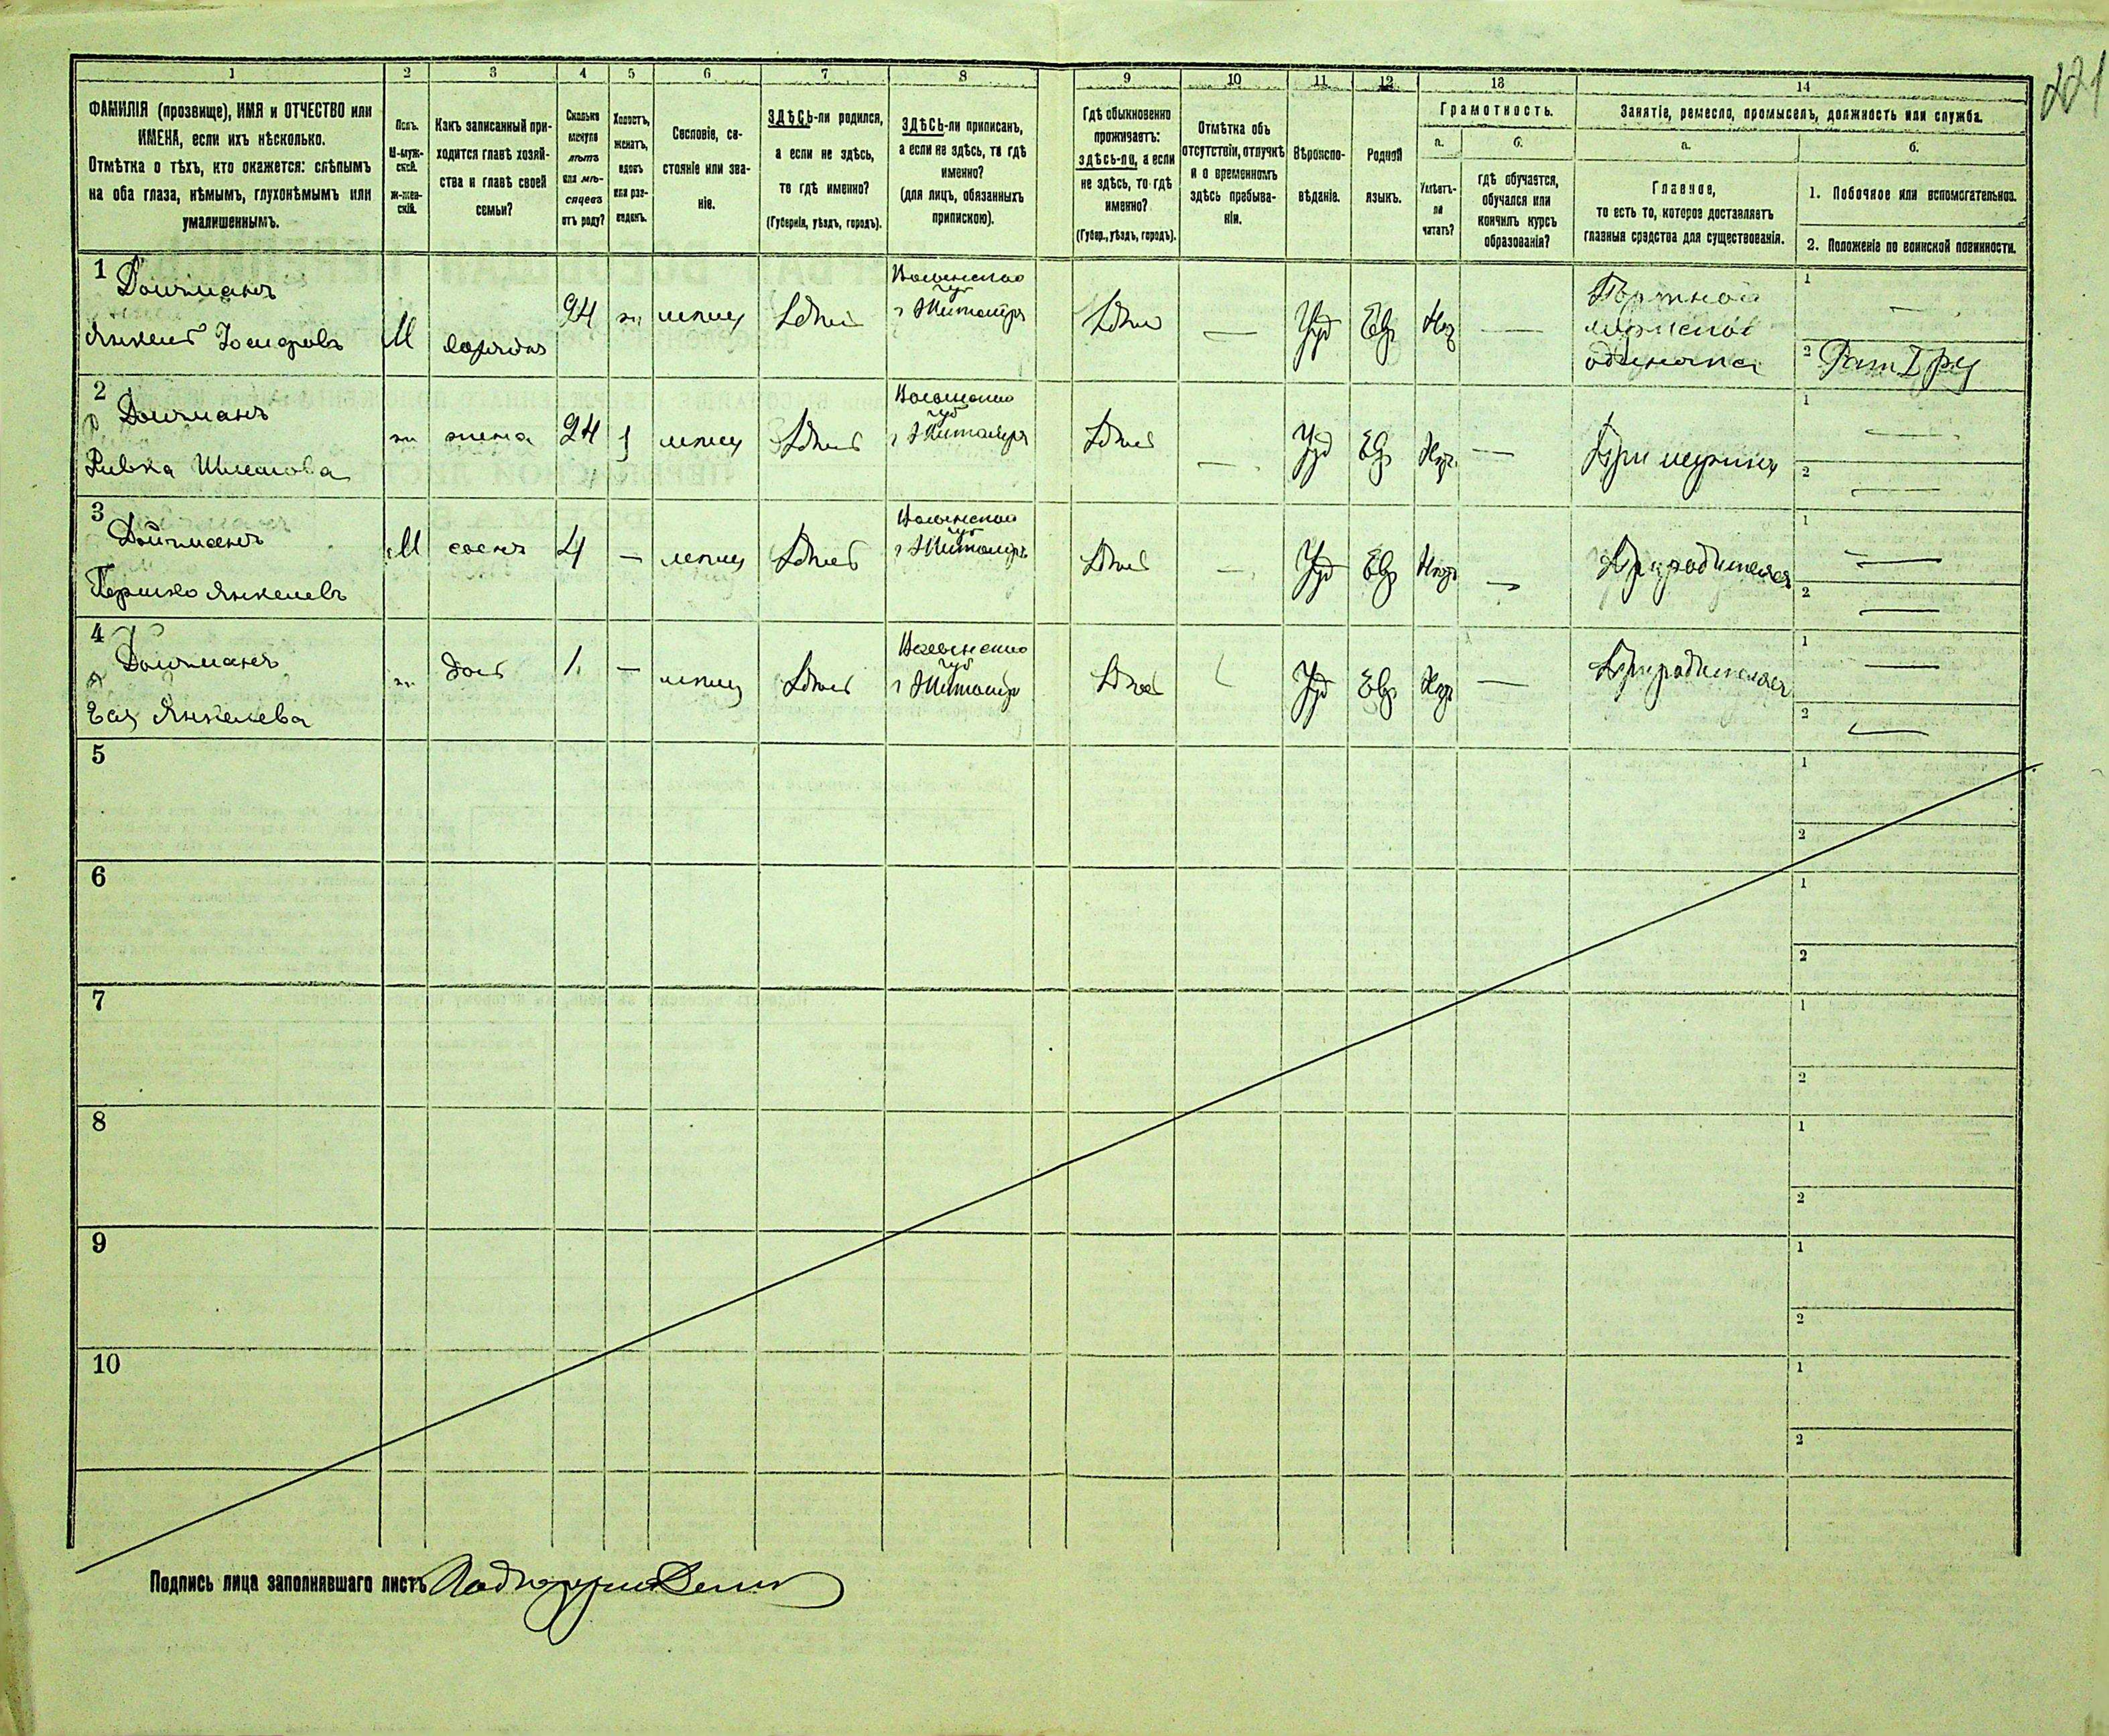 221
1 2 3 4 5 6 7 8 9 10 11 12 13 14
ФАМИЛІЯ (прозвище), ИМЯ и ОТЧЕСТВО или
ИМЕНА, если ихъ нѣсколько.
Отмѣтка о тѣхъ, кто окажется: слѣпымъ
на оба глаза, нѣмымъ, глухонѣмымъ или
умалишеннымъ.
Полъ.
М-муж-
ской.
Ж-жен-
скій.
Какъ записанный при-
ходится главѣ хозяй-
ства и главѣ своей
семьи?
Сколько
минуло
лѣтъ
или мѣ-
сяцевъ
отъ роду?
Холостъ,
женатъ,
вдовъ
или раз-
веденъ.
Сословіе, со-
стояніе или зва-
ніе.
ЗДѢСЬ-ли родился,
а если не здѣсь,
то гдѣ именно?
(Губернія, уѣздъ, городъ).
ЗДѢСЬ-ли приписанъ,
а если не здѣсь, то гдѣ
именно?
(для лицъ, обязанныхъ
припискою).
Гдѣ обыкновенно
проживаетъ:
здѣсь-ли, а если
не здѣсь, то гдѣ
именно?
(Губер., уѣздъ, городъ).
Отмѣтка объ
отсутствіи, отлучкѣ
и о временномъ
здѣсь пребыва-
ніи.
Вѣроиспо-
вѣданіе.
Родной
языкъ.
Грамотность.
а.
Умѣетъ-
ли
читать?
б.
гдѣ обучается,
обучался или
кончилъ курсъ
образованія?
Занятіе, ремесло, промыселъ, должность или служба.
а.
Главное,
то есть то, которое доставляетъ
главныя средства для существованія.
б.
1. Побочное или вспомогательное.
2. Положеніе по воинской повинности.
1
Дойчманъ
Янкель
М
24 ж мѣщ Здѣсь
Волынской
губ
г Житоміръ
Здѣсь — Іуд Евр —
Портной
мужской
одиночка
1 —
2 Рат I ра
2
Дойчманъ
Ривка Шмулова
ж жена 24 мѣщ Здѣсь
Волынской
губ
г Житоміръ
Здѣсь — Іуд Евр —
При мужи
1 —
2 —
3
Дойчманъ
Гершко Янкелевъ
М сынъ 4 — мѣщ Здѣсь
Волынской
губ
г Житоміръ
Здѣсь — Іуд Евр —
При родителях
1 —
2 —
4
Дойчманъ
Янкелева
ж доч 1 — мѣщ Здѣсь
Волынской
губ
г Житоміръ
Здѣсь Іуд Евр —
При родителях
1 —
2 —
5 1
2
6 1
2
7 1
2
8 1
2
9 1
2
10 1
2
Подпись лица заполнявшаго листъ